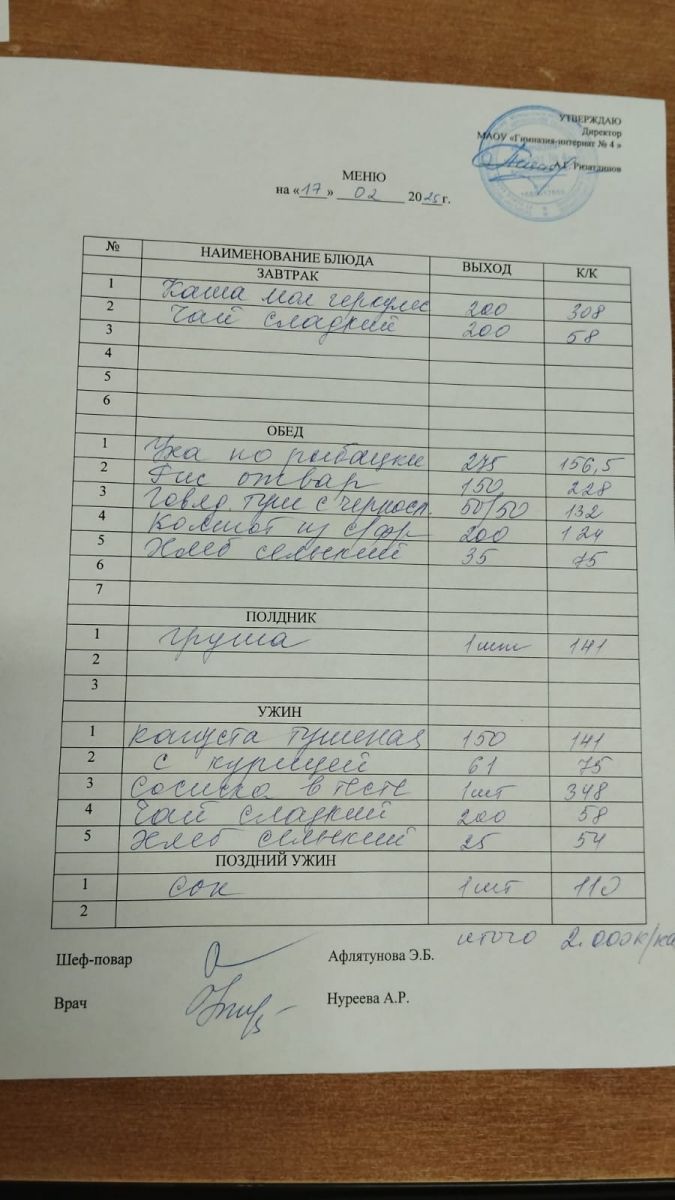 УТВЕРЖДАЮ
Директор
МАОУ «Гимназия-интернат № 4 »
А.Г. Ризатдинов
МЕНЮ
на «17» 02 2025г.
№ НАИМЕНОВАНИЕ БЛЮДА ВЫХОД К/К
ЗАВТРАК
1 Каша мол геркулес 200 308
2 Чай сладкий 200 58
3
4
5
6
ОБЕД
1 Уха по рыбацки 275 156,5
2 Рис отвар 150 228
3 Говяд. туш с черносл. 50/50 132
4 Компот из с/фр 200 124
5 Хлеб сельский 35 75
6
7
ПОЛДНИК
1 груша 1 шт 141
2
3
УЖИН
1 капуста тушеная 150 141
2 с курицей 61 75
3 Сосиска в тесте 1 шт 348
4 Чай сладкий 200 58
5 Хлеб сельский 25 54
ПОЗДНИЙ УЖИН
1 сок 1 шт 110
2
итого
Шеф-повар Афлятунова Э.Б.
Врач Нуреева А.Р.